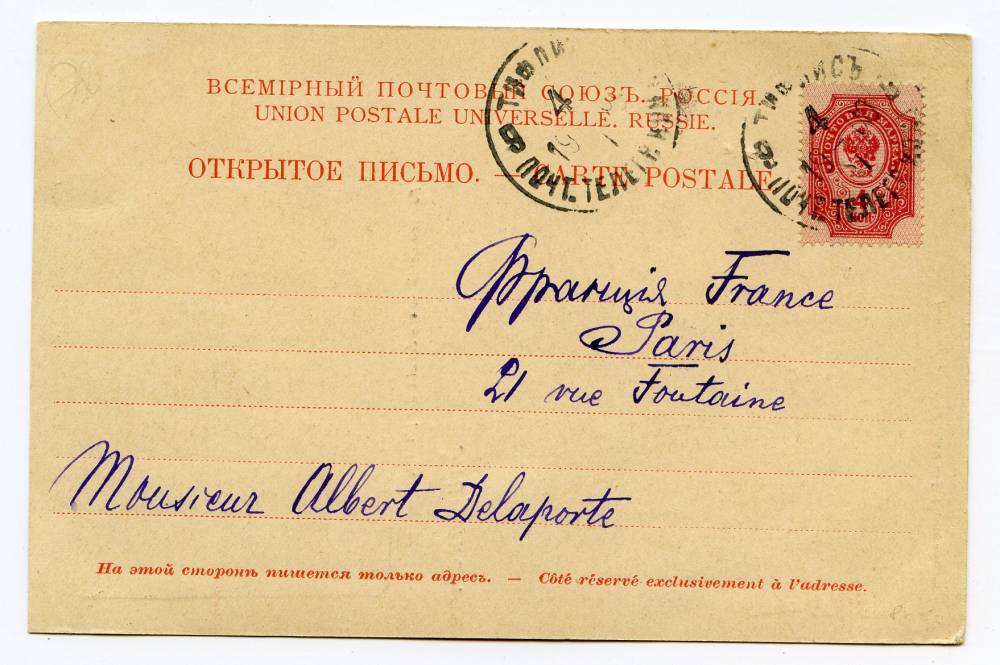 ВСЕМІРНЫЙ ПОЧТОВЫЙ СОЮЗЪ. РОССІЯ.
UNION POSTALE UNIVERSELLE. RUSSIE.
ОТКРЫТОЕ ПИСЬМО. — CARTE POSTALE
ТИФЛИСЪ
4
ПОЧТ. ТЕЛЕГР.
ПОЧТОВАЯ МАРКА
4
КОП
Франція France
Paris
21 rue Fontaine
Monsieur Albert Delaporte
На этой сторонѣ пишется только адресъ. — Côté réservé exclusivement à l'adresse.